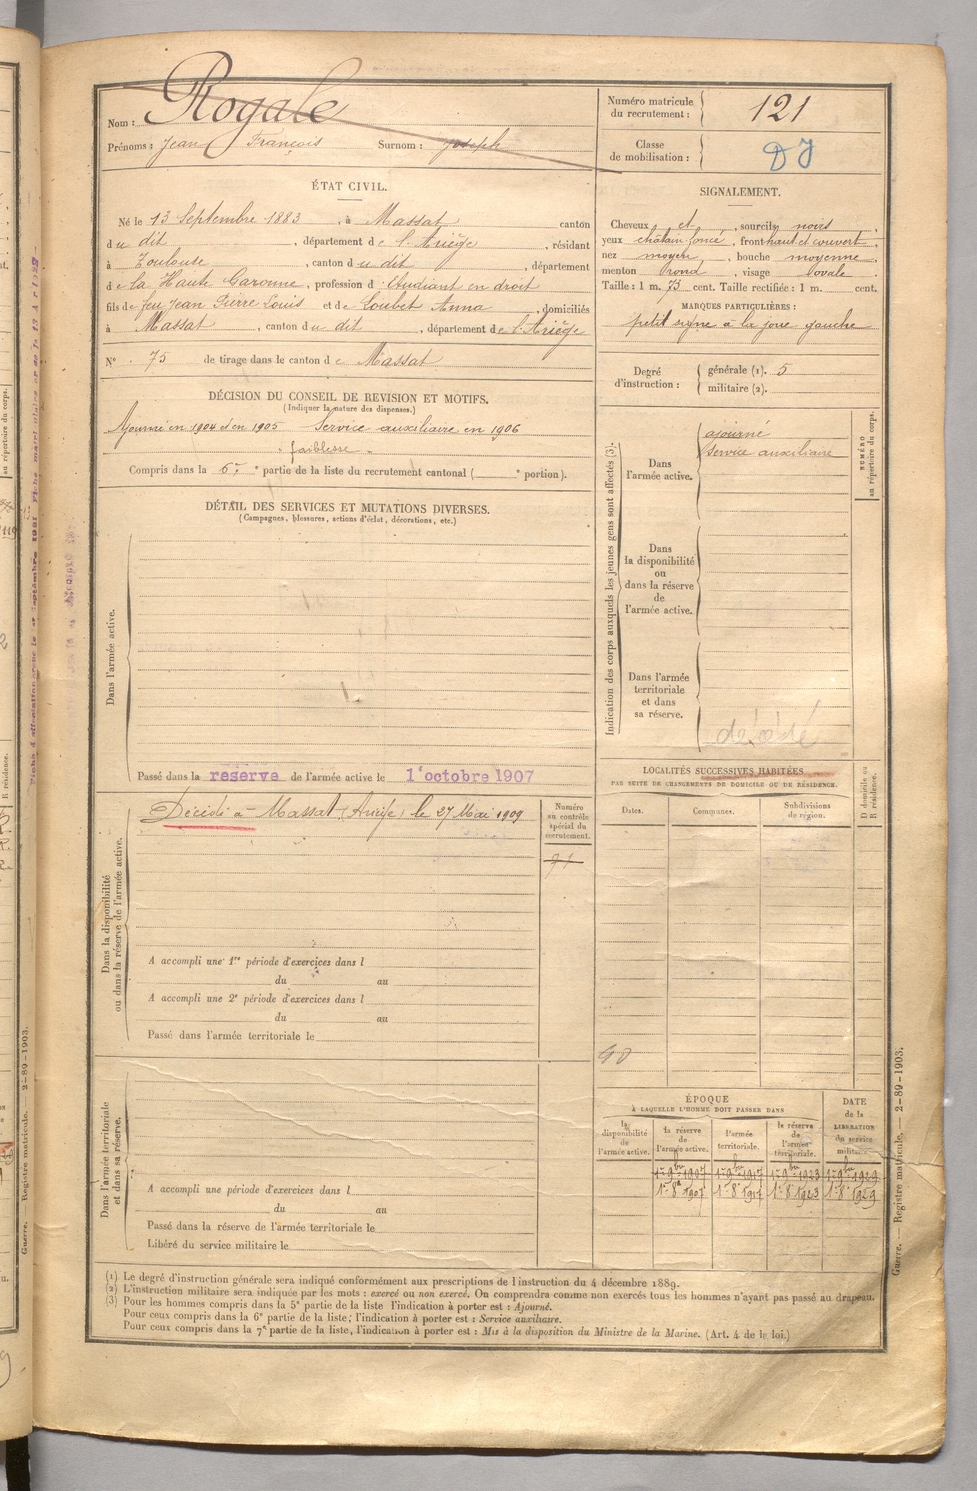 Nom : Rogale
Prénoms : Jean François Surnom : Joseph
Numéro matricule du recrutement : 121
Classe de mobilisation : DJ
ÉTAT CIVIL.
Né le 13 Septembre 1883, à Massat canton
du dit, département de l'Ariège, résidant
à Toulouse, canton du dit, département
de la Haute Garonne, profession d'Etudiant en droit
fils de feu Jean Pierre Louis et de Loubet Anna, domiciliés
à Massat, canton du dit, département de l'Ariège
N° 75 de tirage dans le canton de Massat
SIGNALEMENT.
Cheveux et, sourcils noirs,
yeux châtain foncé, front haut et couvert,
nez moyen, bouche moyenne,
menton rond, visage ovale.
Taille : 1 m. 73 cent. Taille rectifiée : 1 m. cent.
MARQUES PARTICULIÈRES :
petit signe à la joue gauche
Degré d'instruction : générale (1). 5
militaire (2).
DÉCISION DU CONSEIL DE REVISION ET MOTIFS.
(Indiquer la nature des dispenses.)
Ajourné en 1904 et en 1905 Service auxiliaire en 1906
" faiblesse "
Compris dans la 6e partie de la liste du recrutement cantonal ( e portion).
DÉTAIL DES SERVICES ET MUTATIONS DIVERSES.
(Campagnes, blessures, actions d'éclat, décorations, etc.)
Dans l'armée active.
Passé dans la réserve de l'armée active le 1er octobre 1907
Indication des corps auxquels les jeunes gens sont affectés (3).
NUMÉRO au répertoire du corps.
Dans l'armée active.
ajourné
Service auxiliaire
Dans la disponibilité ou dans la réserve de l'armée active.
Dans l'armée territoriale et dans sa réserve.
décédé
Dans la disponibilité ou dans la réserve de l'armée active.
Décédé à Massat (Ariège) le 27 Mai 1909
Numéro au contrôle spécial du recrutement.
A accompli une 1re période d'exercices dans l
du au
A accompli une 2e période d'exercices dans l
du au
Passé dans l'armée territoriale le
LOCALITÉS SUCCESSIVES HABITÉES
PAR SUITE DE CHANGEMENTS DE DOMICILE OU DE RÉSIDENCE.
D domicile ou R résidence.
Dates. Communes. Subdivisions de région.
Dans l'armée territoriale et dans sa réserve.
A accompli une période d'exercices dans l
du au
Passé dans la réserve de l'armée territoriale le
Libéré du service militaire le
ÉPOQUE
À LAQUELLE L'HOMME DOIT PASSER DANS
DATE de la LIBÉRATION du service militaire.
la disponibilité de l'armée active.
la réserve de l'armée active.
l'armée territoriale.
la réserve de l'armée territoriale.
1er 9bre 1907 1er 9bre 1917 1er 9bre 1923 1er 9bre 1929
1er 8bre 1907 1er 8 1917 1er 8 1923 1er 8 1929
(1) Le degré d'instruction générale sera indiqué conformément aux prescriptions de l'instruction du 4 décembre 1889.
(2) L'instruction militaire sera indiquée par les mots : exercé ou non exercé. On comprendra comme non exercés tous les hommes n'ayant pas passé au drapeau.
(3) Pour les hommes compris dans la 5e partie de la liste l'indication à porter est : Ajourné.
Pour ceux compris dans la 6e partie de la liste; l'indication à porter est : Service auxiliaire.
Pour ceux compris dans la 7e partie de la liste, l'indication à porter est : Mis à la disposition du Ministre de la Marine. (Art. 4 de la loi.)
Guerre. — Registre matricule. — 2-89-1903.
Guerre. — Registre matricule. — 2-89-1903.